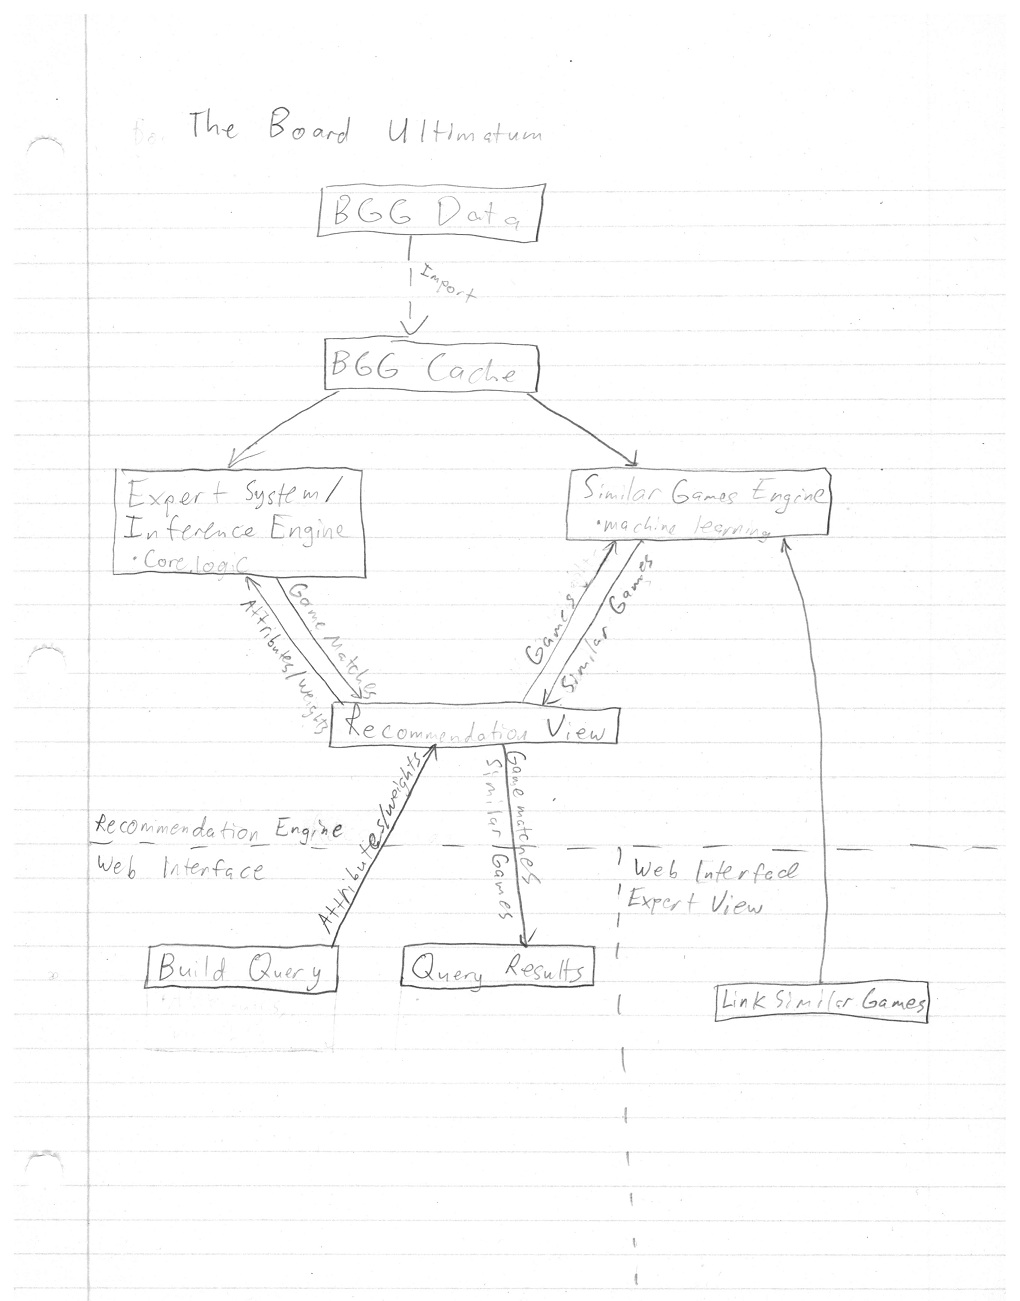 The Board Ultimatum
BGG Data
Import
BGG Cache
Expert System/
Inference Engine
• Core.logic
Similar Games Engine
• machine learning
Game Matches
Attributes/weights
Games
Similar Games
Recommendation View
Attributes/weights
Game matches
Similar/Games
Recommendation Engine
Web Interface
Web Interface
Expert View
Build Query
Query Results
Link Similar Games